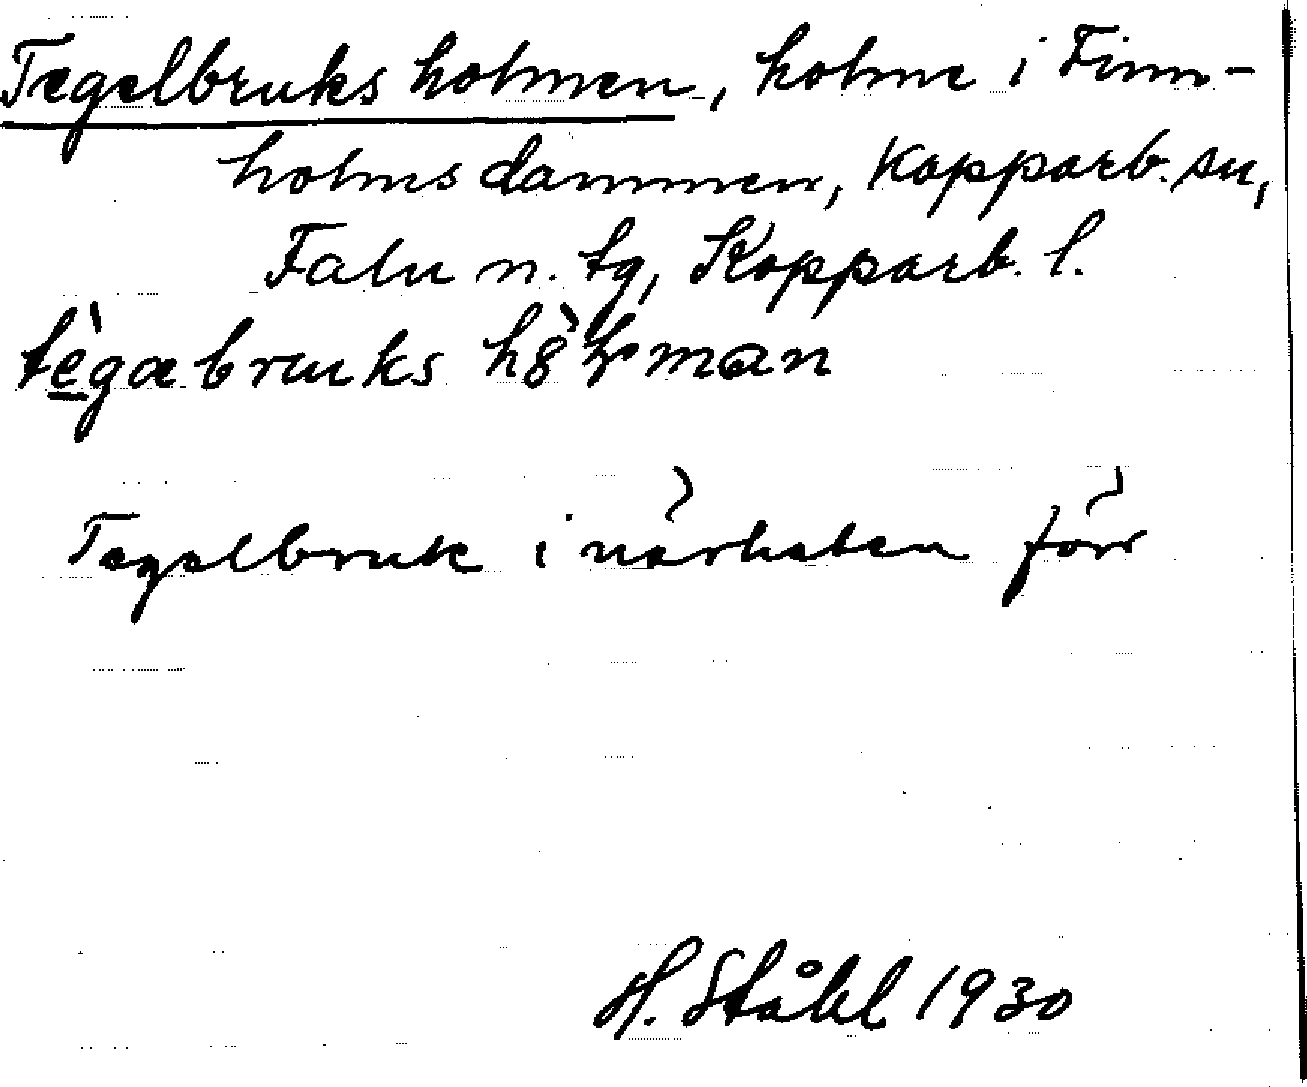 Tegelbruksholmen, holme i Finn-
holmsdammen, Kopparb. sn,
Falu n. tg, Kopparb. l.
tègabruks
Tegelbruk i närheten förr
H. Ståhl 1930